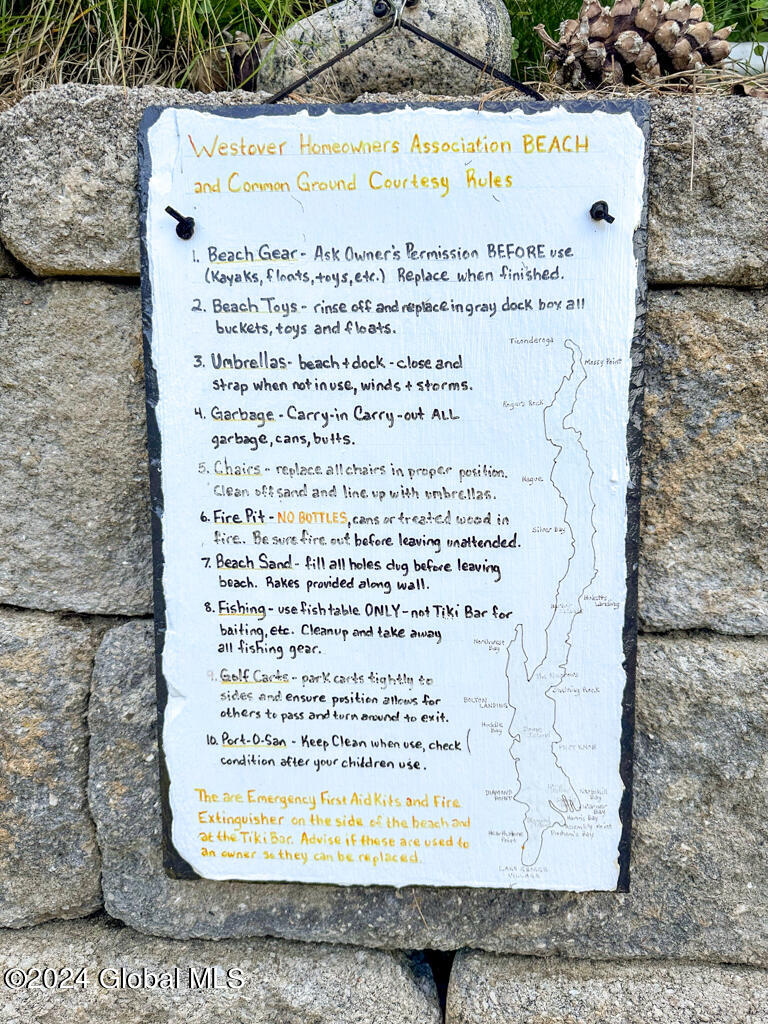 Westover Homeowners Association BEACH
and Common Ground Courtesy Rules
1. Beach Gear - Ask Owner's Permission BEFORE use
(Kayaks, floats, toys, etc.) Replace when finished.
2. Beach Toys - rinse off and replace in gray dock box all
buckets, toys and floats.
3. Umbrellas - beach + dock - close and
strap when not in use, winds + storms.
4. Garbage - Carry-in Carry-out ALL
garbage, cans, butts.
5. Chairs - replace all chairs in proper position.
Clean off sand and line up with umbrellas.
6. Fire Pit - NO BOTTLES, cans or treated wood in
fire. Be sure fire out before leaving unattended.
7. Beach Sand - fill all holes dug before leaving
beach. Rakes provided along wall.
8. Fishing - use fish table ONLY - not Tiki Bar for
baiting, etc. Cleanup and take away
all fishing gear.
9. Golf Carts - park carts tightly to
sides and ensure position allows for
others to pass and turn around to exit.
10. Port-O-San - Keep Clean when use, check
condition after your children use.
The are Emergency First Aid Kits and Fire
Extinguisher on the side of the beach and
at the Tiki Bar. Advise if these are used to
an owner so they can be replaced.
Ticonderoga
Mossy Point
Rogers Rock
Hague
Silver Bay
Huletts
Landing
Northwest
Bay
The Narrows
BOLTON
LANDING
Huddle
Bay
Dome
Island
PILOT KNOB
DIAMOND
POINT
Warner
Bay
Harris Bay
Assembly Point
Dunham's Bay
Hearthstone
Point
LAKE GEORGE
VILLAGE
©2024 Global MLS